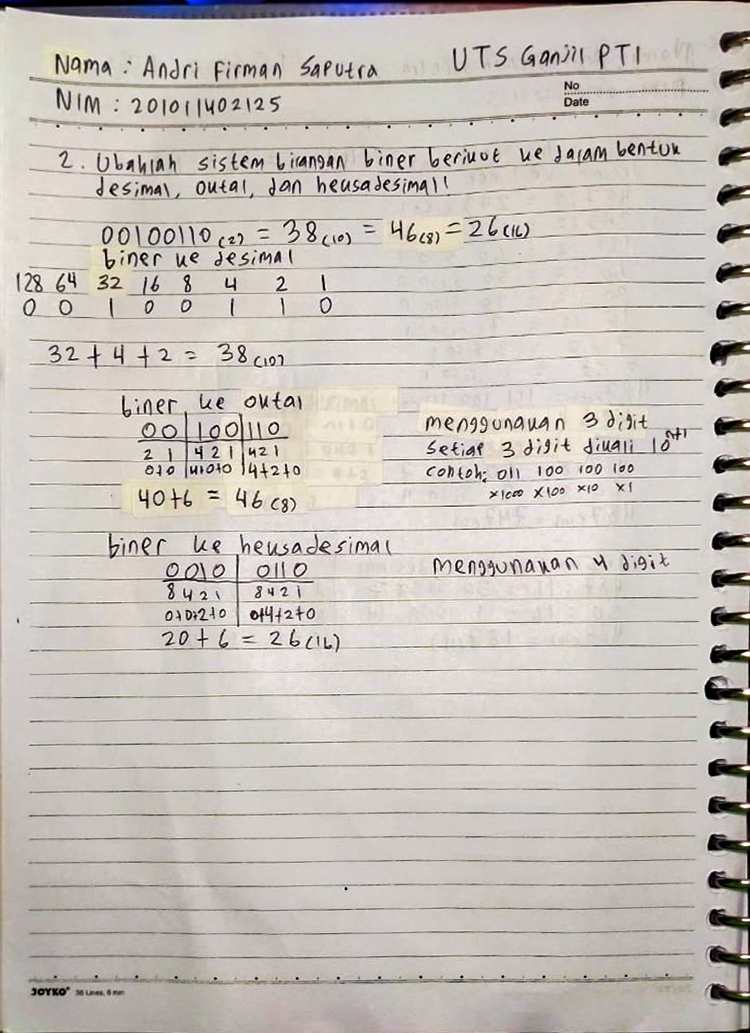 Nama : Andri Firman Saputra UTS Ganjil PTI
NIM : 201011402125
No
Date
2. Ubahlah sistem bilangan biner berikut ke dalam bentuk
desimal, oktal, dan heksadesimal!
00100110 (2) = 38 (10) = 46 (8) = 26 (16)
biner ke desimal
128 64 32 16 8 4 2 1
0 0 1 0 0 1 1 0
32 + 4 + 2 = 38 (10)
biner ke oktal
00 | 100 | 110
2 1 | 4 2 1 | 4 2 1
0+0 | 4+0+0 | 4+2+0
40+6 = 46 (8)
menggunakan 3 digit
Setiap 3 digit dikali 10^n+1
contoh: 011 100 100 100
×1000 ×100 ×10 ×1
biner ke heksadesimal
0010 | 0110
8 4 2 1 | 8 4 2 1
0+0+2+0 | 0+4+2+0
20 + 6 = 26 (16)
menggunakan 4 digit
JOYKO 36 Lines, 6 mm